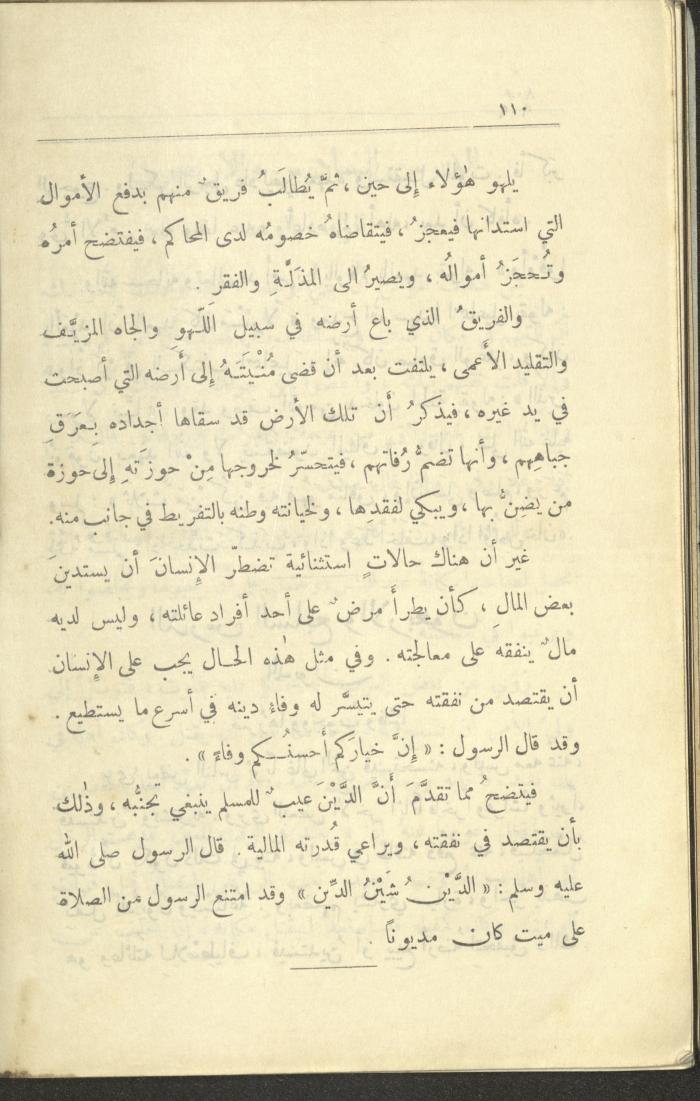 ١١٠
يلهو هٰؤلاء إلى حين ، ثمَّ يُطالَبُ فريقٌ منهم بدفع الأموال
التي استدانها فيعجزُ ، فيتقاضاهُ خصومُه لدى المحاكم ، فيفتضح أمرُه
وتُحجَزُ أموالُه ، ويصيرُ الى المذلَّةِ والفقر .
والفريقُ الذي باع أرضه في سبيل اللّهوِ والجاه المزيَّف
والتقليد الأَعمى ، يلتفت بعد أن قضى مُنْيَتَهُ إلى أَرضه التي أصبحت
في يد غيره ، فيذكرُ أَن تلك الأرض قد سقاها أجداده بِعَرَقِ
جباههم ، وأنها تضمُّ رُفاتهم ، فيتحسّرُ لخروجها مِنْ حوزَتهِ إلى حوزة
من يضِنُّ بها ، ويبكي لفقدِها ، ولخيانته وطنه بالتفريط في جانب منه.
غير أن هناك حالاتٍ استثنائية تضطرّ الإنسانَ أن يستدينَ
بعض المالِ ، كأن يطرأَ مرضٌ على أحد أفراد عائلته ، وليس لديه
مالٌ ينفقه على معالجته . وفي مثل هٰذه الحال يجب على الإنسان
أن يقتصد من نفقته حتى يتيسَّر له وفاءُ دينه في أسرع ما يستطيع .
وقد قال الرسول : « إنَّ خيارَكم أَحسنُكم وفاءً » .
فيتضحُ مما تقدَّمَ أَنَّ الدَّيْنَ عيبٌ للمسلم ينبغي تجنُّبه ، وذٰلك
بأن يقتصد في نفقته ، ويراعي قُدرته المالية . قال الرسول صلى الله
عليه وسلم : « الدَّيْنُ شَيْنُ الدِّين » وقد امتنع الرسول من الصلاة
على ميت كان مديوناً .